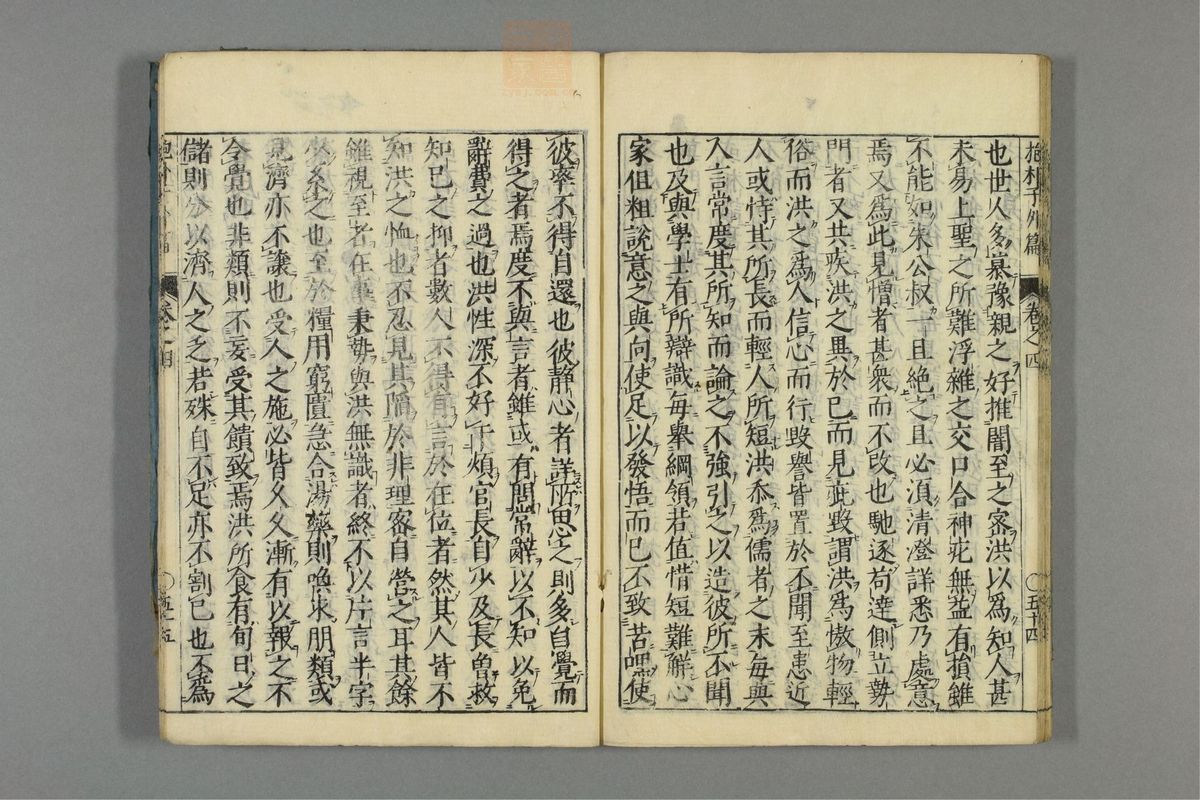 抱朴子外篇 卷之四 五十四
也世人多慕豫親之好推闇至之密洪以爲知人甚
未易上聖之所難浮雜之交口合神𠧧無益有損雖
不能如朱公叔一旦絶之且必須清澄詳悉乃處意
焉又爲此見憎者甚衆而不改也馳逐苟達側立勢
門者又共疾洪之異於已而見疵毀謂洪爲傲物輕
俗而洪之爲人信心而行毀譽皆置於不聞至患近
人或恃其所長而輕人所短洪忝爲儒者之末每與
人言常度其所知而論之不強引之以造彼所不聞
也及與學士有所辯識每舉綱領若值惜短難解心
家但粗説意之與向使足以發悟而已不致苦理使
彼率不得自還也彼静心者詳所思之則多自覺而
得之者焉度不與言者雖或有問常辭以不知以免
辭費之過也洪性深不好干煩官長自少及長曾救
知已之抑者數人不得有言於在位者然其人皆不
知洪之恤也不忍見其陷於非理密自營之耳其餘
雖視至者在事秉勢與洪無識者終不以片言半字
之也至於糧用窮匱急合湯藥則喚求朋類或
見濟亦不讓也受人之施必皆久久漸有以報之不
令覺也非類則不妄受其饋致焉洪所食有旬日之
儲則分以濟人之乏若殊自不足亦不割已也不爲
抱朴子外篇 卷之四 五十五